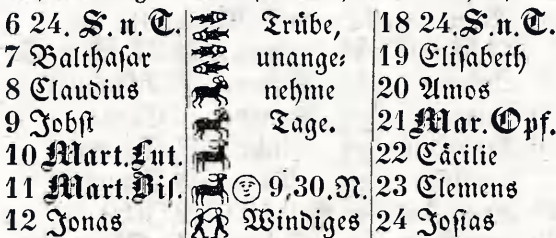 6 24. S. n. T. Trübe, 18 24. S. n. T.
7 Balthasar unange⸗ 19 Elisabeth
8 Claudius nehme 20 Amos
9 Jobst Tage. 21 Mar. Opf.
10 Mart. Lut. 22 Cäcilie
11 Mart. Bis. 9.30.N. 23 Clemens
12 Jonas Windiges 24 Josias